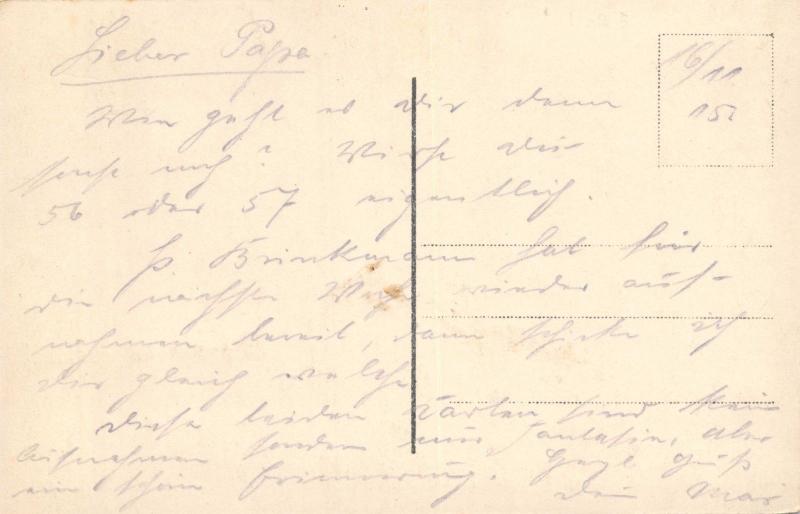 Lieber Papa
16/11
15
Wie geht es Dir denn
sonst noch? Wirst Du
56 oder 57 eigentlich.
Brinkmann hat für
die nächste Woche wieder auf-
nahmen bereit, dann schicke ich
Dir gleich welche
Diese beiden Karten sind kein
Aufnahmen sondern nur Fantasie, aber
ein schön Erinnerung. Herzl Gruß
Dein Max